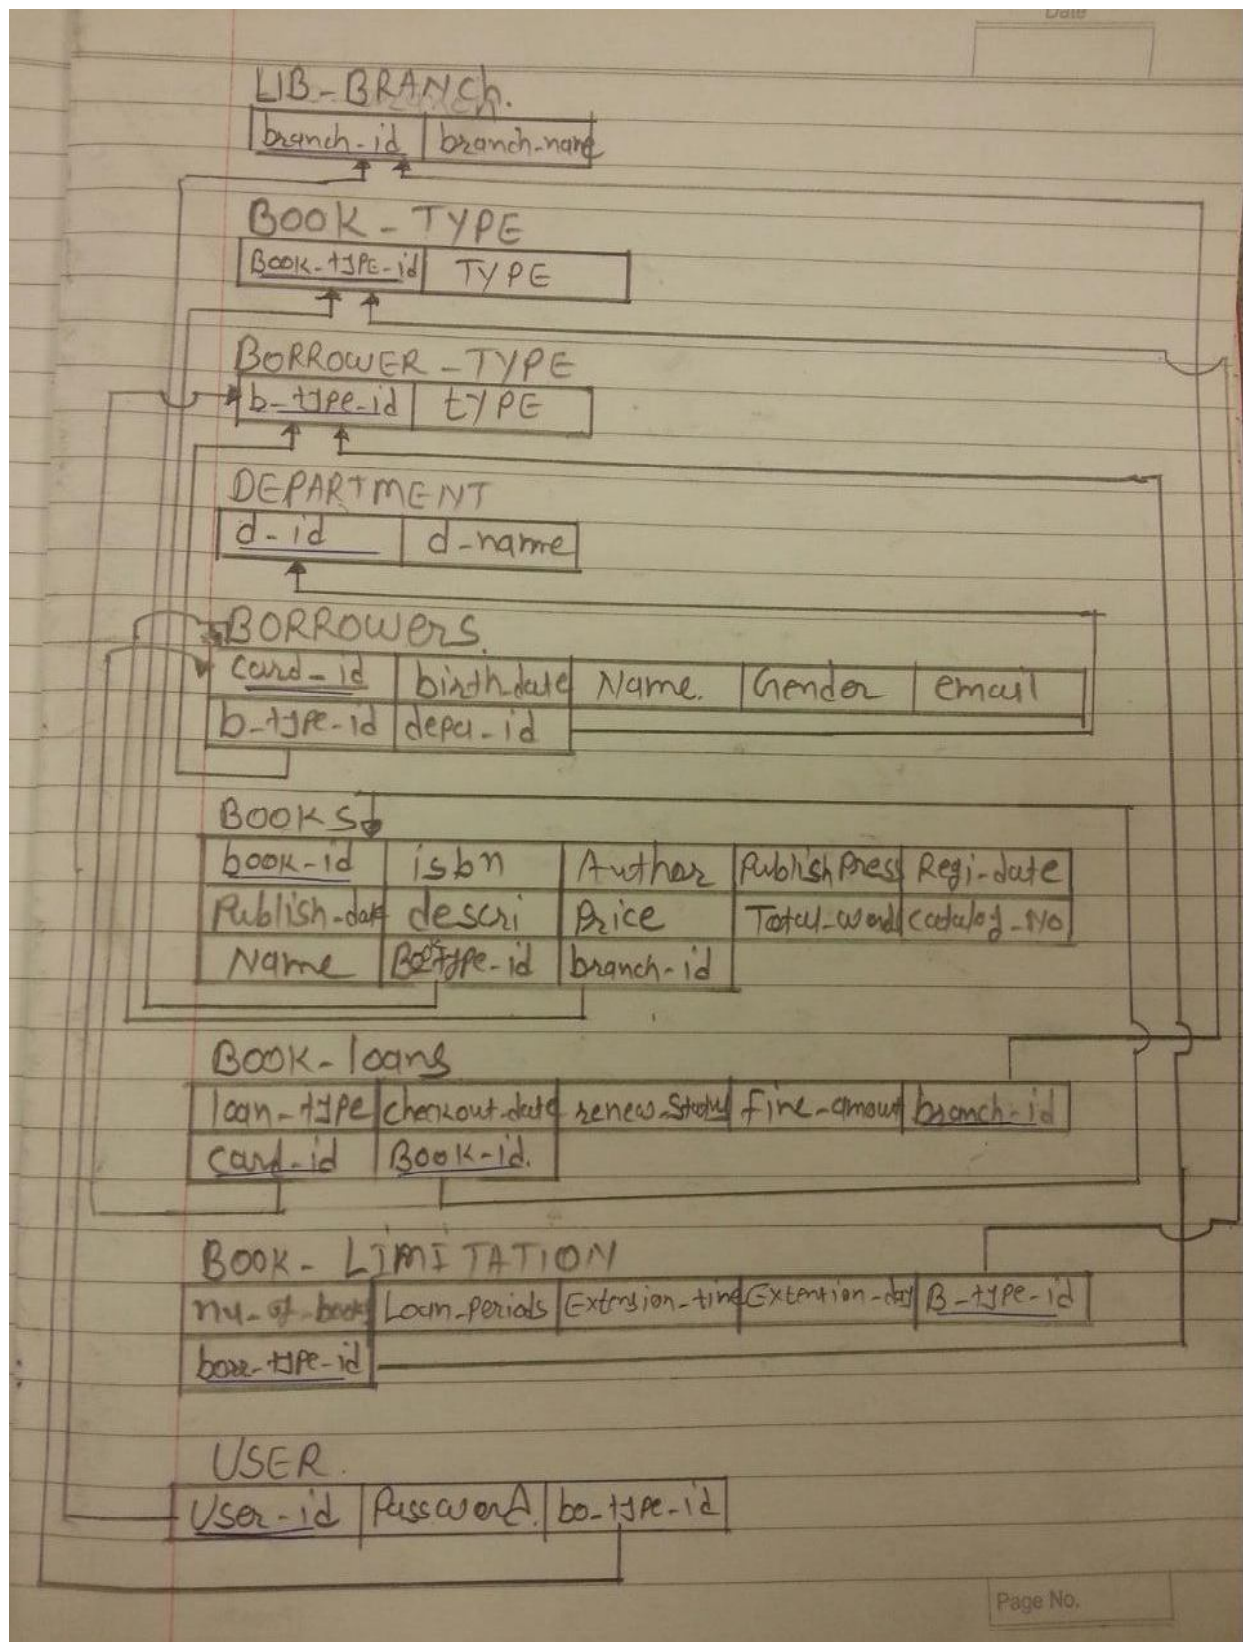 Date
LIB-BRANCh.
branch-id branch-name
BOOK-TYPE
Book-type-id TYPE
BORROWER-TYPE
b-type-id tYPE
DEPARTMENT
d-id d-name
BORROWers.
card-id birthdate Name. Gender email
b-type-id depa-id
BOOKS
book-id isbn Author PublishPress Regi-date
Publish-date descri Price Total-word Catalog-No
Name branch-id
BOOK-loans
loan-type checkout-date renew-Status fine-amount branch-id
card-id BOOK-id.
BOOK-LIMITATION
nu-of-books Loan-Periods Extension-time Extention-day B-type-id
borr-type-id
USER.
User-id Password. bo-type-id
Page No.